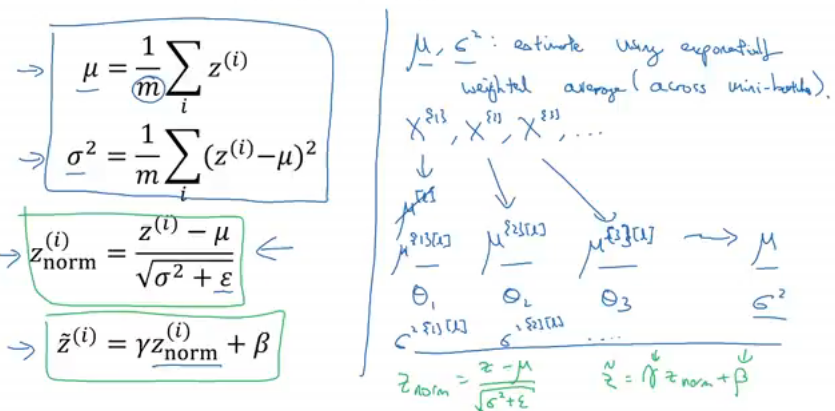 μ = 1/m ∑_i z^(i)
σ² = 1/m ∑_i (z^(i) − μ)²
z_norm^(i) = (z^(i) − μ) / √(σ² + ε)
z̃^(i) = γ z_norm^(i) + β
μ, σ² : estimate using exponentially
weighted average (across mini-batches).
X^{1}, X^{2}, X^{3}, ...
μ^{1}[l] μ^{2}[l] μ^{3}[l] → μ
θ₁ θ₂ θ₃ σ²
σ²^{1}[l] σ²^{2}[l] ....
z_norm = (z − μ) / √(σ² + ε) z̃ = γ z_norm + β